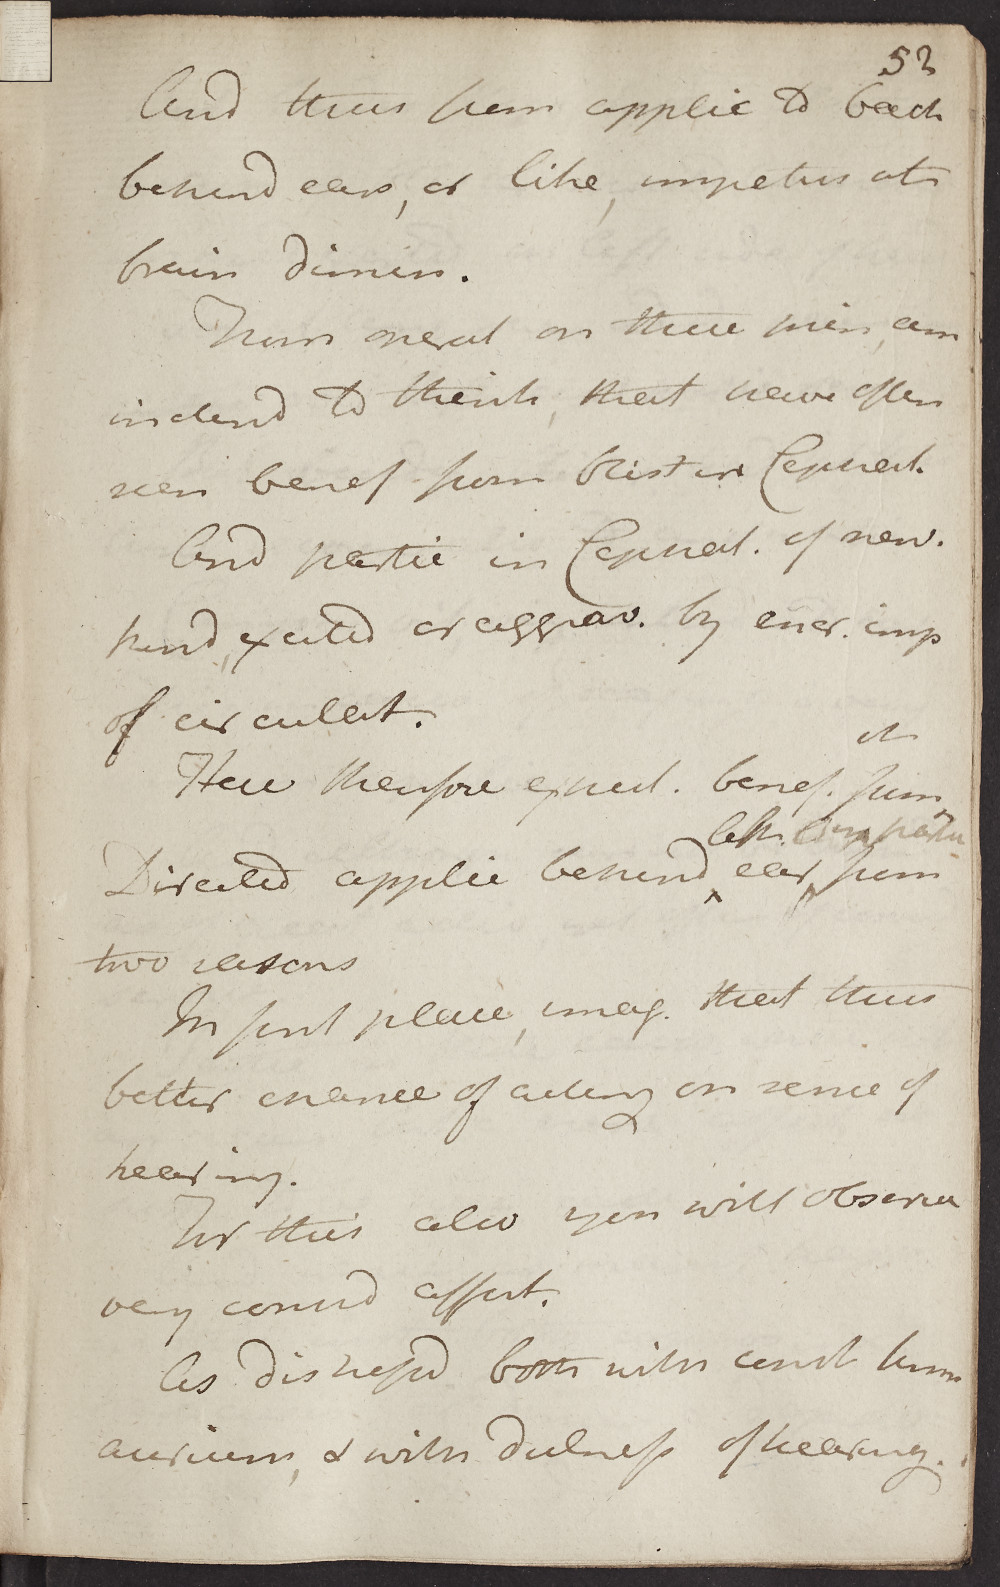 52
And thus from applic to back
behind ears, or like, impetus at
brain dimin.
From general on these prin, am
inclind to think, that have often
seen benef from blist in Cephal.
And partic in Cephal. of nerv.
kind, excited or aggrav. by encr. imp
of circulat.
Here therefore expect. benef. from
it
Directed applic behind ear, from
left
two reasons
In first place, imag. that thus
better chance of acting on sense of
hearing.
For this also you will observe
very consid affect.
As distressd both with const
aurium, & with dulness of hearing.